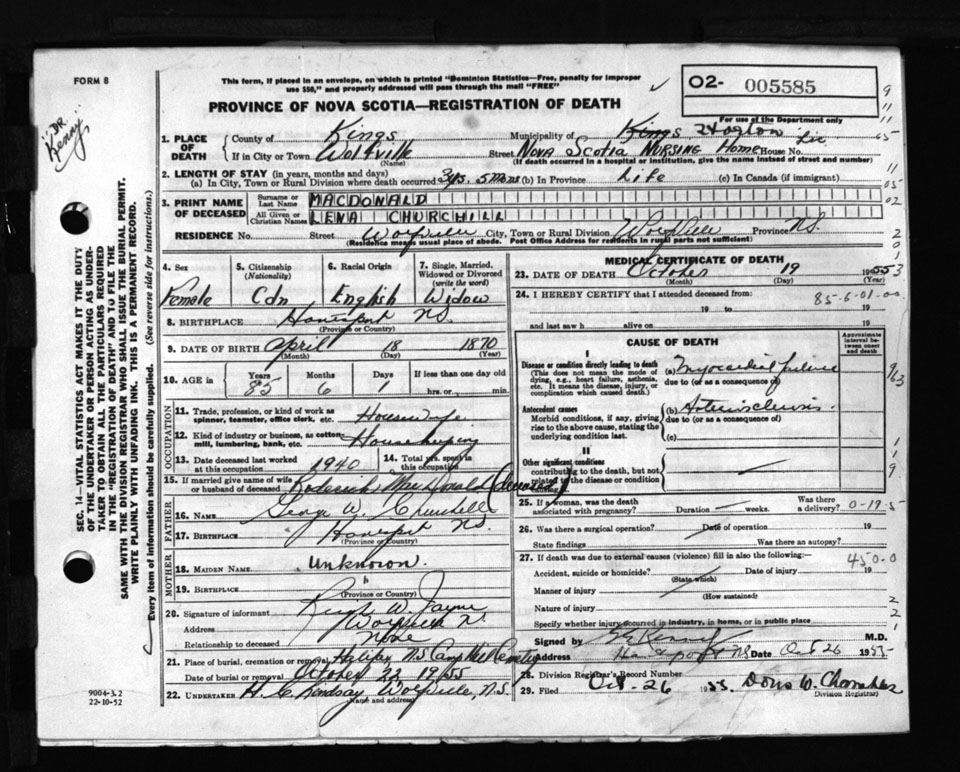 FORM 8
This form, if placed in an envelope, on which is printed "Dominion Statistics—Free, penalty for improper
use $50," and properly addressed will pass through the mail "FREE"
O2- 005585
For use of the Department only
PROVINCE OF NOVA SCOTIA—REGISTRATION OF DEATH
"DR. Kenny"
1. PLACE OF DEATH
County of Kings
Municipality of Kings Horton
If in City or Town Wolfville
(Name)
Street Nova Scotia Nursing Home House No.
(If death occurred in a hospital or institution, give the name instead of street and number)
2. LENGTH OF STAY (in years, months and days)
(a) In City, Town or Rural Division where death occurred 3 yrs. 5 mons (b) In Province Life (c) In Canada (if immigrant)
3. PRINT NAME OF DECEASED
Surname or Last Name MACDONALD
All Given or Christian Names LENA CHURCHILL
RESIDENCE No. Street Wolfville City, Town or Rural Division Wolfville Province N.S.
(Residence means usual place of abode. Post Office Address for residents in rural parts not sufficient)
4. Sex
Female
5. Citizenship
(Nationality)
Cdn
6. Racial Origin
English
7. Single, Married, Widowed or Divorced
(write the word)
Widow
8. BIRTHPLACE Hantsport N.S.
(Province or Country)
9. DATE OF BIRTH April 18 1870
(Month) (Day) (Year)
10. AGE in
Years 85
Months 6
Days 1
If less than one day
hrs. or min.
OCCUPATION
11. Trade, profession, or kind of work as spinner, teamster, office clerk, etc. Housewife
12. Kind of industry or business, as cotton mill, lumbering, bank, etc. Housekeeping
13. Date deceased last worked at this occupation 1940
14. Total yrs. spent in this occupation
15. If married give name of wife or husband of deceased Roderick MacDonald (deceased)
FATHER
16. NAME George W. Churchill
17. BIRTHPLACE Hantsport N.S.
(Province or Country)
MOTHER
18. MAIDEN NAME Unknown.
19. BIRTHPLACE "
(Province or Country)
20. Signature of informant W. Jayne
Address Wolfville N.
Relationship to deceased None
21. Place of burial, cremation or removal Halifax N.S. Camp Hill Cemetery
Date of burial or removal October 22 1955
22. UNDERTAKER H. C. Lindsay Wolfville, N.S.
(Name and address)
MEDICAL CERTIFICATE OF DEATH
23. DATE OF DEATH October 19 1955
(Month) (Day)
24. I HEREBY CERTIFY that I attended deceased from
85-6-01-00
19 to 19
and last saw h alive on 19
CAUSE OF DEATH
Approximate interval between onset and death
I
Disease or condition directly leading to death
(This does not mean the mode of dying, e.g., heart failure, asthenia, etc. It means the disease, injury, or complication which caused death.)
(a) Myocardial failure
due to (or as a consequence of)
Antecedent causes
Morbid conditions, if any, giving rise to the above cause, stating the underlying condition last.
(b) Arteriosclerosis.
due to (or as a consequence of)
(c)
II
Other significant conditions
contributing to the death, but not related to the disease or condition causing it.
25. If a woman, was the death associated with pregnancy? Duration — weeks. Was there a delivery?
0-19-5
26. Was there a surgical operation? Date of operation 19
State findings Was there an autopsy?
27. If death was due to external causes (violence) fill in also the following:
450-0
Accident, suicide or homicide? Date of injury 19
(State which)
Manner of injury
(How sustained)
Nature of injury
Specify whether injury occurred in industry, in home, or in public place
Signed by Kenny M.D.
Address Hantsport NS Date Oct 26 1955
28. Division Registrar's Record Number
29. Filed Oct-26 1955.
Division Registrar
SEC. 14—VITAL STATISTICS ACT MAKES IT THE DUTY
OF THE UNDERTAKER OR PERSON ACTING AS UNDER-
TAKER TO OBTAIN ALL THE PARTICULARS REQUIRED
IN THE "REGISTRATION OF DEATH" AND TO FILE THE
SAME WITH THE DIVISION REGISTRAR WHO SHALL ISSUE THE BURIAL PERMIT.
WRITE PLAINLY WITH UNFADING INK. THIS IS A PERMANENT RECORD.
Every item of information should be carefully supplied. (See reverse side for instructions.)
9004-3.2
22-10-52